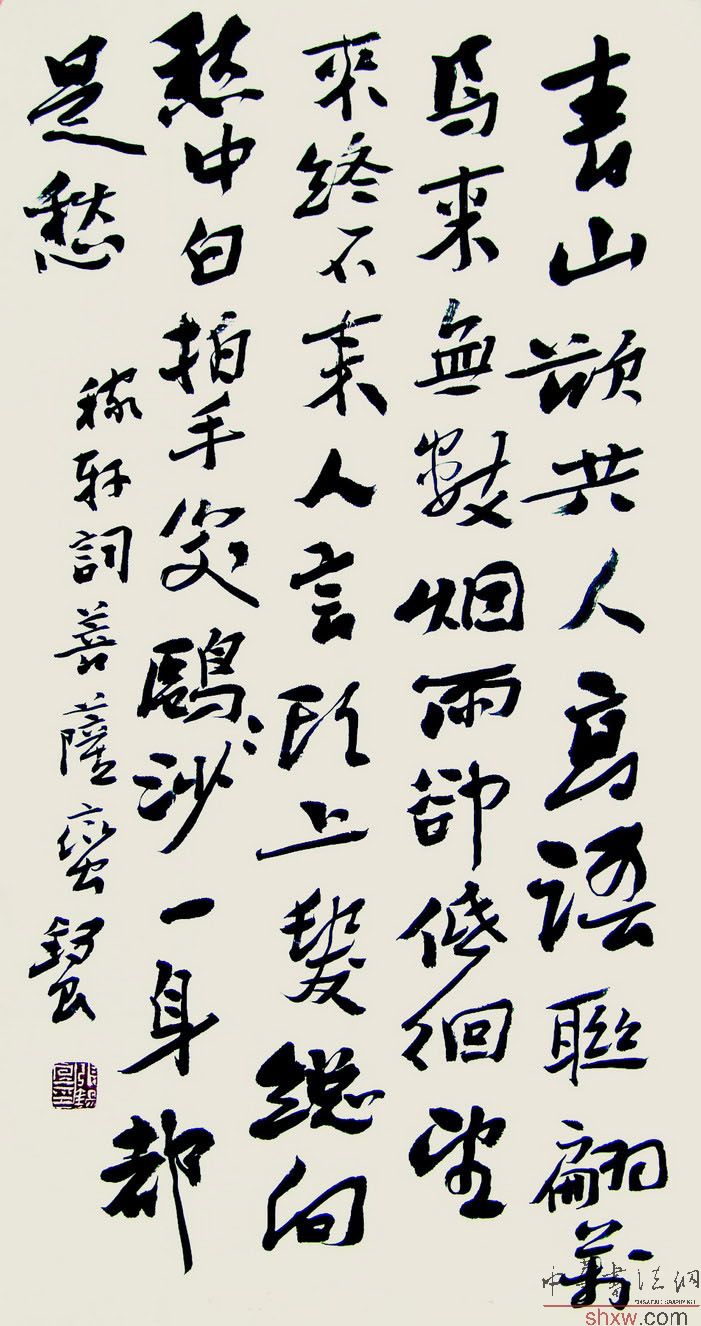 青山欲共人高語聯翩萬
馬來無數烟雨卻低徊望
來終不來人言頭上髮總向
愁中白拍手笑鷗沙一身都
是愁
稼軒詞菩薩蠻錫良
張錫良印
中華書法網
shxw.com